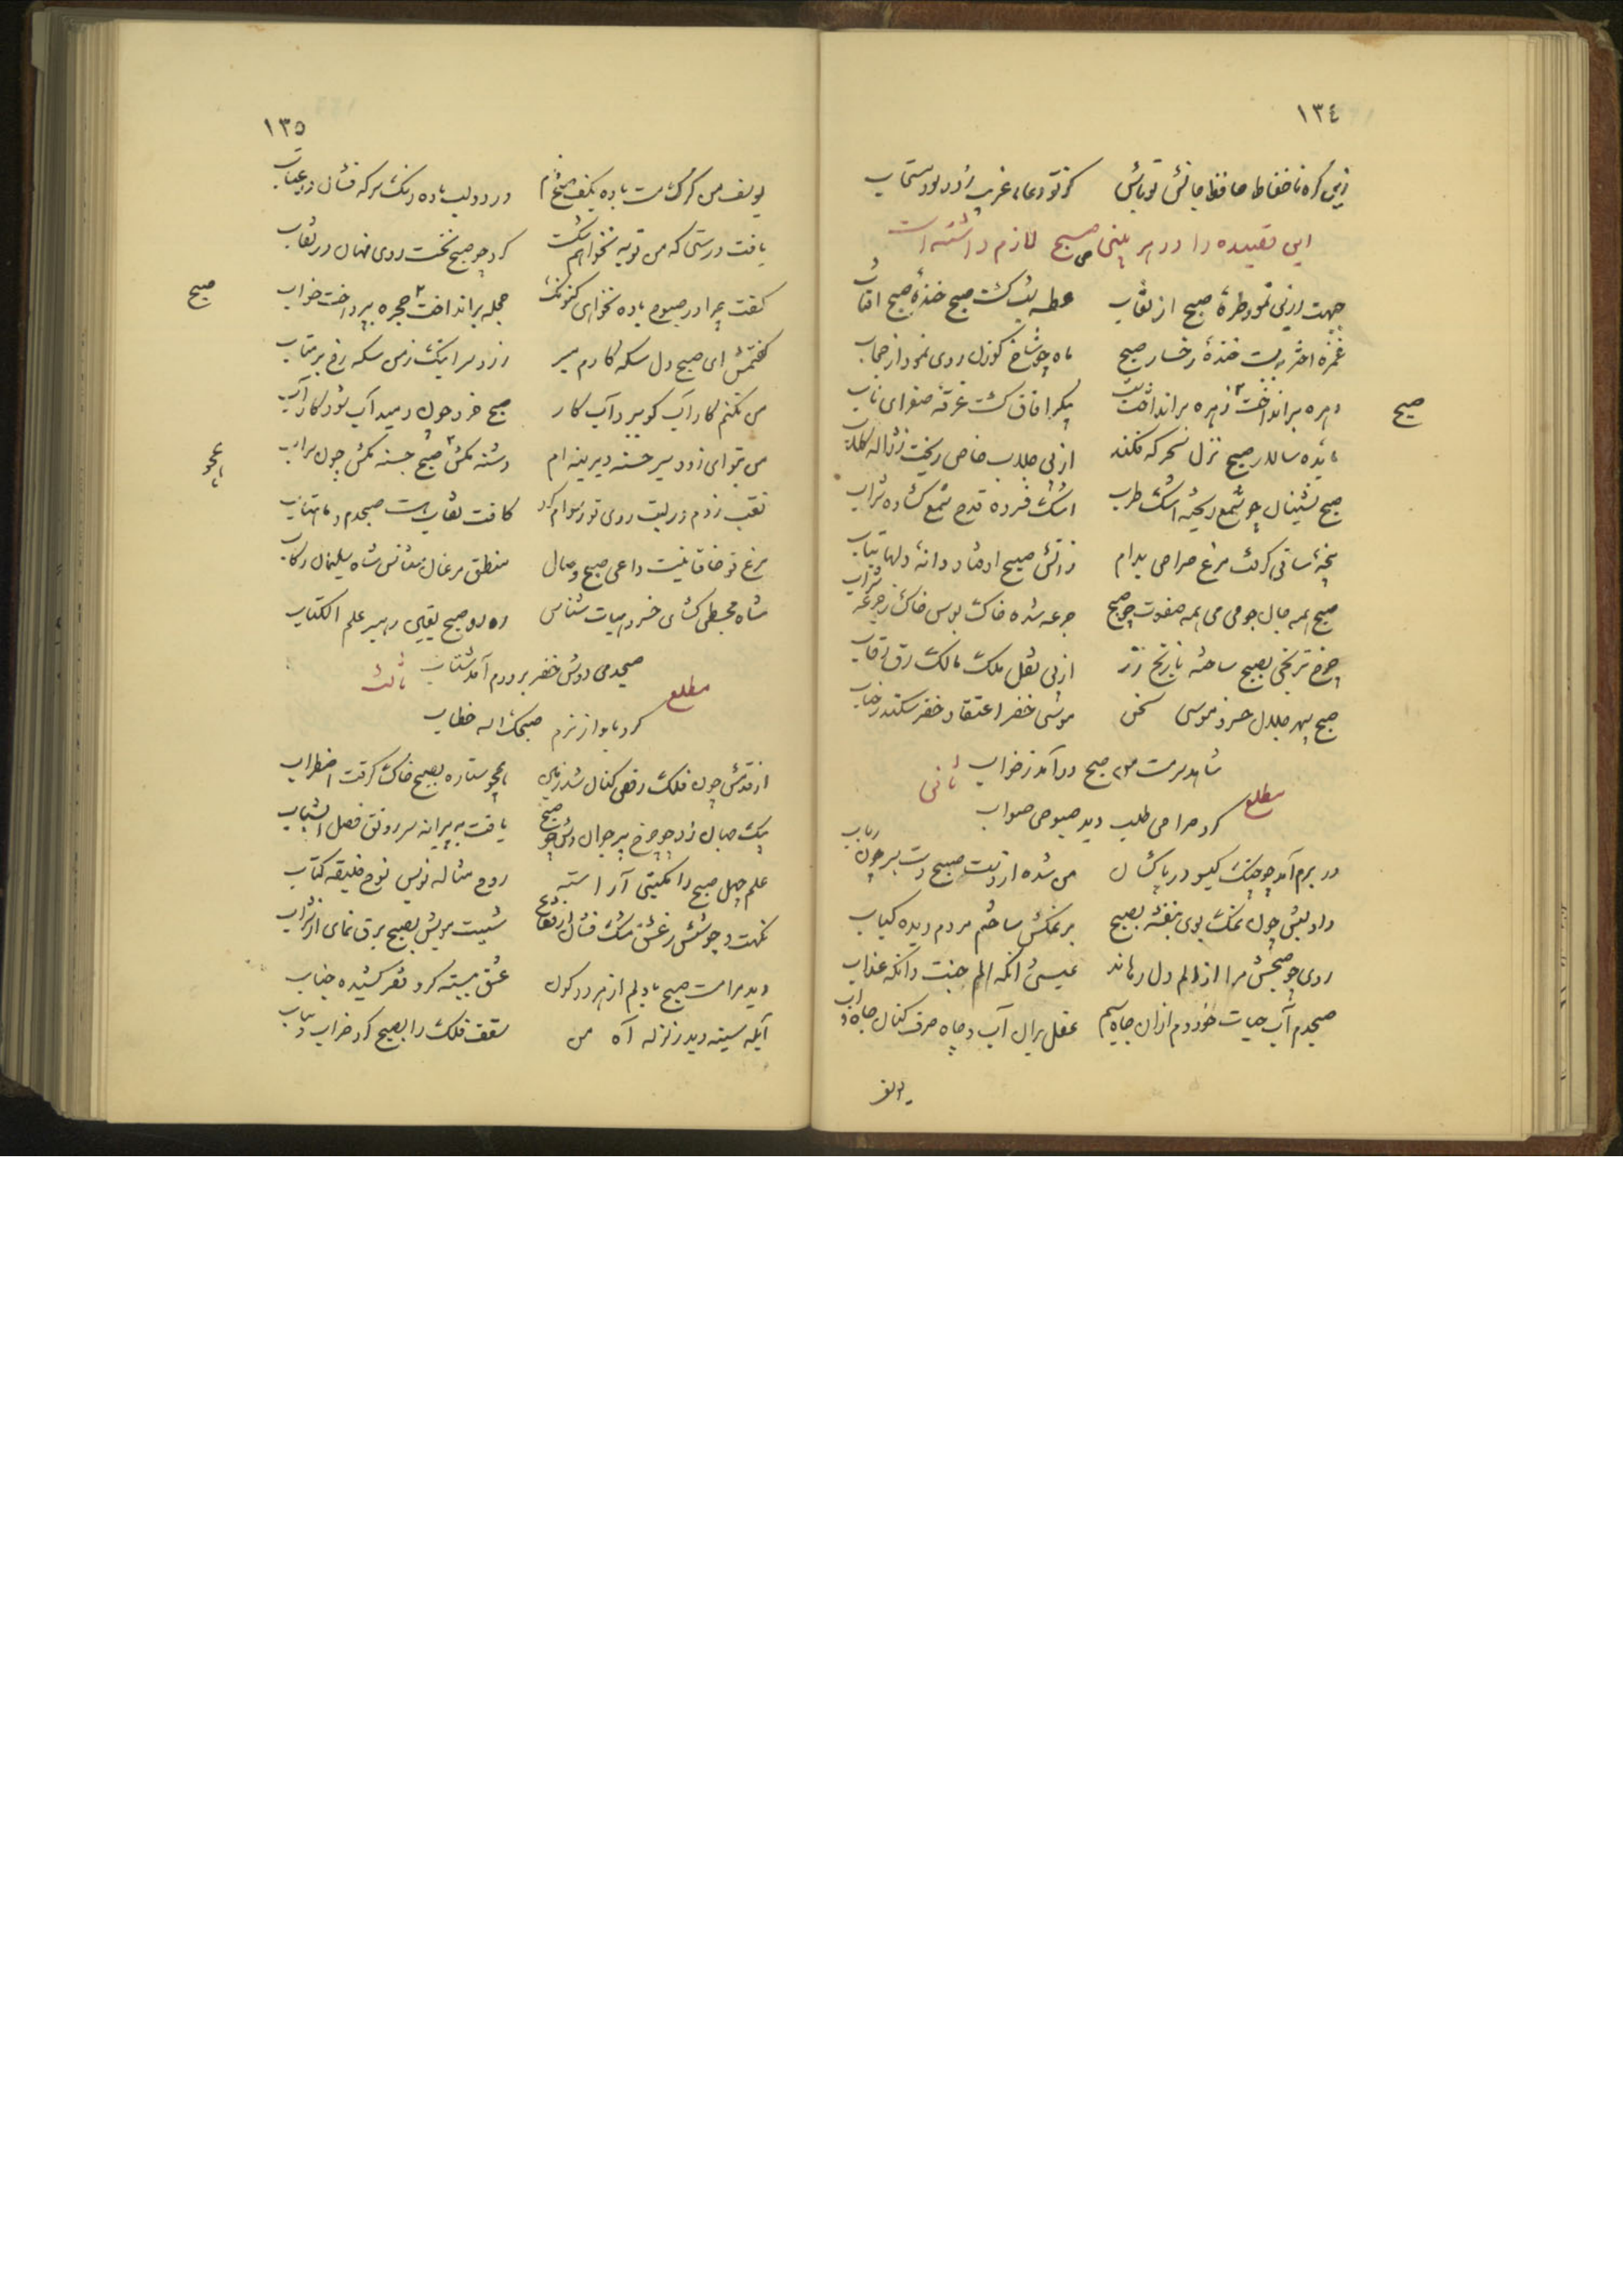 ١٣٤
زین کره ناحفاظ حافظ جانش تو باش کز تو دعای غریب زود بود مستجاب
این قصیده را در هر بیتی صبح لازم داشته است
جبهت زرین نمود طره صبح از نقاب عطسه شب گشت صبح خنده صبح آفتاب
غمزه اختر ببست خنده رخسار صبح ماه چو شاخ گوزن روی نمود از حجاب
صبح
زهره برانداخت پیکر آفاق گشت غرقه صفرای ناب
مایده سالار صبح نزل سحرگه فکند از پی جلاب خاص ریخت ز ژاله گلاب
صبح نشینان چو شمع ریخته اشک طرب اشک فسرده قدح شمع گشاده شراب
پنجه ساقی گرفت مرغ صراحی بدام ز آتش صبح اوفتاد دانه دلها بتاب
صبح همه جان چو می می همه صفوت چو صبح جرعه شده خاک بوس خاک ز جرعه شراب
چرخ ترنجی بصبح ساخته نارنج زر از پی نقل ملک مالک رق رقاب
صبح سپهر جلال خسرو موسی سخن موسی خضر اعتقاد خضر سکندر جناب
شاهد سرمست من صبح درآمد ز خواب
مطلع ثانی
کرد صراحی طلب دید صبوحی صواب
در برم آمد چو چنگ گیسو در پاکشان من شده از دست صبح دست بسر چون رباب
داد لبش چون نمک بوی بنفشه بصبح بر نمکش ساختم مردم دیده کباب
روی چو صبحش مرا از الم دل رهاند عیسی و آنگه الم جنت و آنگه عذاب
صبحدم آب حیات خوردم از آن چاه سیم عقل بر آن آب و چاه صرف کنان جاه و آب
یوسف
١٣٥
یوسف من گرگ مست باده بکف صبح فام در دو لب باده رنگ سرکه فشان از عتاب
یافت درستی که من توبه نخواهم شکست کرد چو صبح نخست روی نهان در نقاب
گفت چرا در صبوح باده نخواهی کنونک حجله برانداخت صبح حجره بپرداخت خواب
صبح
گفتمش ای صبح دل سکه کارم مبر زر و سر اینک ز من سکه رخ برمتاب
من نکنم کار آب کو ببرد آب کار صبح خرد چون دمید آب شود کار آب
من بتو ای زود سیر تشنه دیرینه ام دشنه مکش صبح تشنه مکش چون سراب
همچو
نقب زدم در لبت روی تو رسوام کرد کافت نقاب هست صبحدم و ماهتاب
مرغ تو خاقانیست داعی صبح وصال منطق مرغان شناس شاه سلیمان رکاب
شاه مجسطی گشای خسرو هیات شناس رهرو صبح یقین رهبر علم الکتاب
صبحدمی دوش خضر بر درم آمد شتاب
مطلع ثالث
کرد باواز نرم صبحک الله خطاب
از قدمش چون فلک رقص کنان شد زمین همچو ستاره بصبح خاک گرفت اضطراب
پیک جهان رو چو چرخ پیر جوان وش چو صبح یافت به پیرانه سر رونق فصل الشباب
علم چهل صبح را مکتبی آراسته روح مثاله نویس نوح خلیفه کتاب
شیبت مویش بصبح برق نمای از شراب
دید مرا مست صبح با دلم از هر دو کون عشق ببسته گرو فقر کشیده جناب
آبله سینه دید زلزله آه من سقف فلک را بصبح کرد خراب و یباب